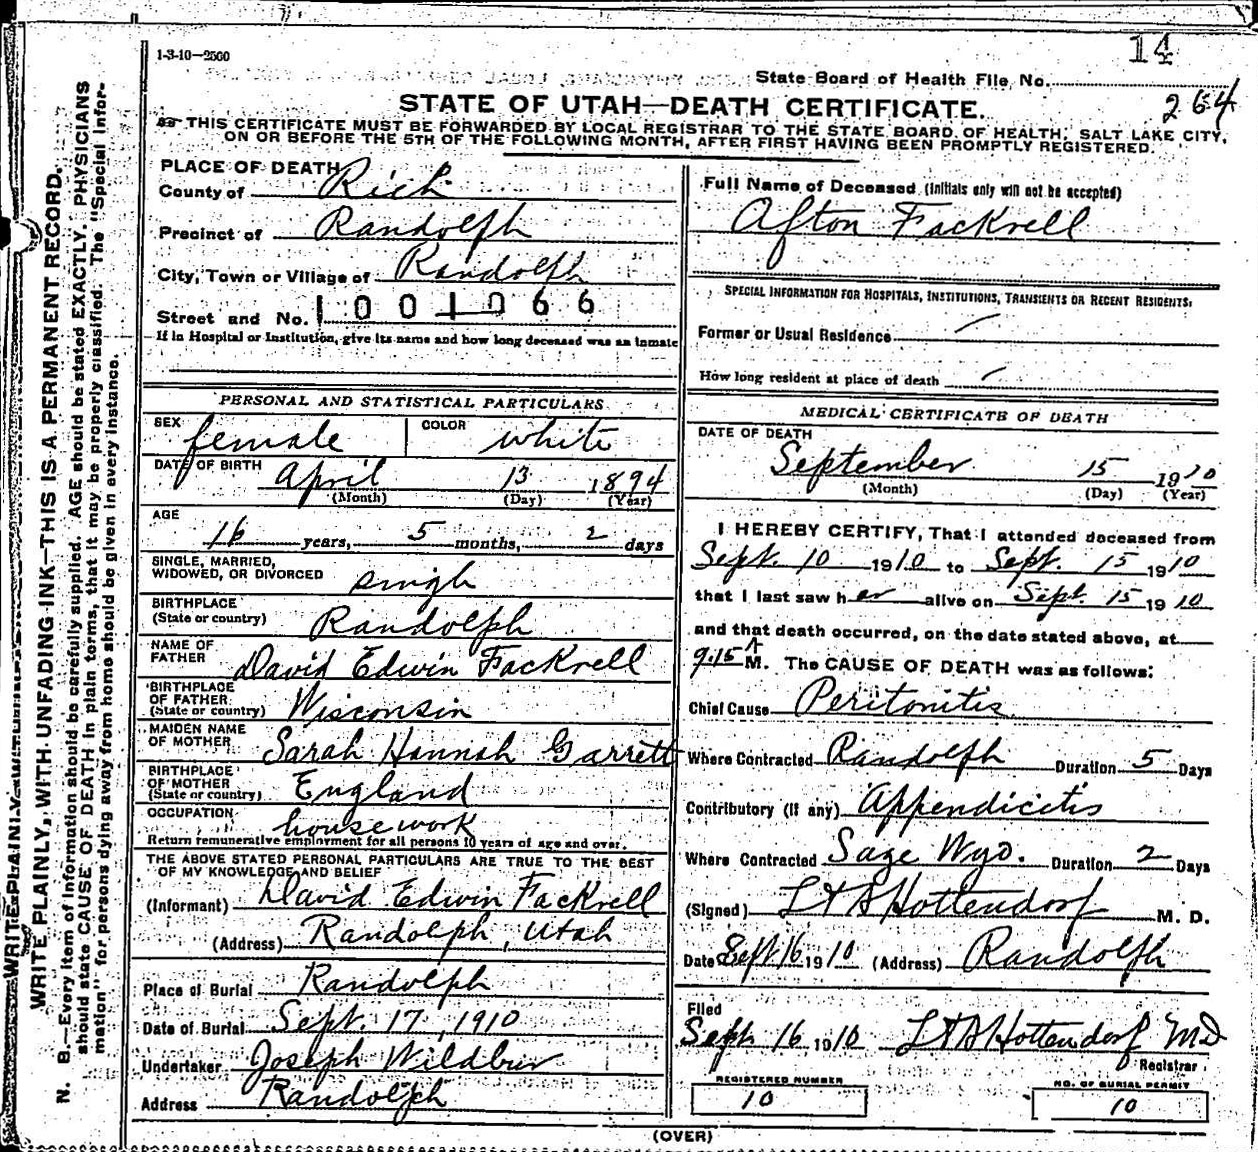 14
1-3-10—2500
State Board of Health File No.
264
STATE OF UTAH—DEATH CERTIFICATE.
THIS CERTIFICATE MUST BE FORWARDED BY LOCAL REGISTRAR TO THE STATE BOARD OF HEALTH, SALT LAKE CITY,
ON OR BEFORE THE 5TH OF THE FOLLOWING MONTH, AFTER FIRST HAVING BEEN PROMPTLY REGISTERED.
WRITE PLAINLY, WITH UNFADING INK—THIS IS A PERMANENT RECORD.
N. B.—Every item of information should be carefully supplied. AGE should be stated EXACTLY. PHYSICIANS
should state CAUSE OF DEATH in plain terms, that it may be properly classified. The "Special Infor-
mation" for persons dying away from home should be given in every instance.
PLACE OF DEATH
County of Rich
Precinct of Randolph
City, Town or Village of Randolph
Street and No. 1001066
If in Hospital or Institution, give its name and how long deceased was an inmate
PERSONAL AND STATISTICAL PARTICULARS
SEX female COLOR white
DATE OF BIRTH April 13 1894
(Month) (Day) (Year)
AGE
16 years, 5 months, 2 days
SINGLE, MARRIED,
WIDOWED, OR DIVORCED single
BIRTHPLACE
(State or country) Randolph
NAME OF
FATHER David Edwin Fackrell
BIRTHPLACE
OF FATHER
(State or country) Wisconsin
MAIDEN NAME
OF MOTHER Sarah Hannah Garrett
BIRTHPLACE
OF MOTHER
(State or country) England
OCCUPATION housework
Return remunerative employment for all persons 10 years of age and over.
THE ABOVE STATED PERSONAL PARTICULARS ARE TRUE TO THE BEST
OF MY KNOWLEDGE AND BELIEF
(Informant) David Edwin Fackrell
(Address) Randolph, Utah
Place of Burial Randolph
Date of Burial Sept. 17, 1910
Undertaker Joseph Wildbur
Address Randolph
Full Name of Deceased (Initials only will not be accepted)
Afton Fackrell
SPECIAL INFORMATION FOR HOSPITALS, INSTITUTIONS, TRANSIENTS OR RECENT RESIDENTS:
Former or Usual Residence
How long resident at place of death
MEDICAL CERTIFICATE OF DEATH
DATE OF DEATH
September 15 1910
(Month) (Day) (Year)
I HEREBY CERTIFY, That I attended deceased from
Sept. 10 1910 to Sept. 15 1910
that I last saw her alive on Sept. 15 1910
and that death occurred, on the date stated above, at
9.15 A M. The CAUSE OF DEATH was as follows:
Chief Cause Peritonitis
Where Contracted Randolph Duration 5 Days
Contributory (if any) Appendicitis
Where Contracted Sage Wyo. Duration 2 Days
(Signed) Hottendorf M. D.
Date Sept 16 1910 (Address) Randolph
Filed
Sept 16 1910 Hottendorf MD
Registrar
REGISTERED NUMBER
10
NO. OF BURIAL PERMIT
10
(OVER)